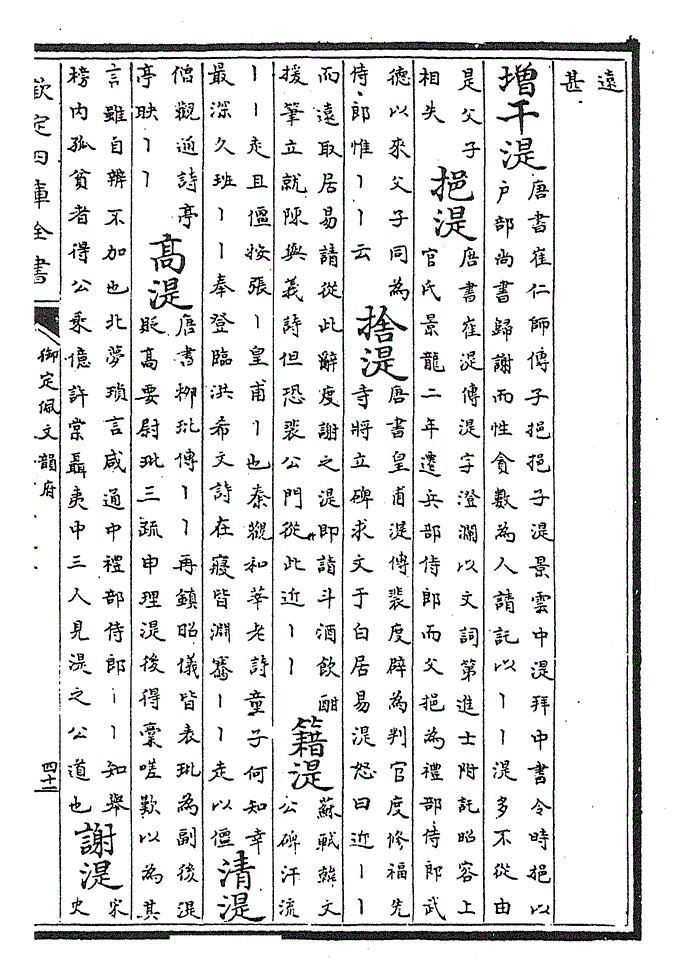 遠
甚
增干湜
唐書崔仁師傳子挹挹子湜景雲中湜拜中書令時挹以
户部尚書歸謝而性貪數為人請託以丨丨湜多不從由
是父子
相失
挹湜
唐書崔湜傳湜字澄瀾以文詞第進士附託昭容上
官氏景龍二年遷兵部侍郎而父挹為禮部侍郎武
德以來父子同為
侍郎惟丨丨云
捨湜
唐書皇甫湜傳裴度辟為判官度修福先
寺將立碑求文于白居易湜怒曰近丨丨
而遠取居易請從此辭度謝之湜即請斗酒飲酣
援筆立就陳與義詩但恐裴公門從此近丨丨
籍湜
蘇軾韓文
公碑汗流
丨丨走且僵按張丨皇甫丨也秦觀和莘老詩童子何知幸
最深久班丨丨奉登臨洪希文詩在寢皆淵騫丨丨走以僵
清湜
僧觀遁詩亭
亭映丨丨
高湜
唐書柳玭傳丨丨再鎮昭儀皆表玭為副後湜
貶高要尉玭三疏申理湜後得藁嗟歎以為其
言雖自辨不加也北夢瑣言咸通中禮部侍郎丨丨知舉
榜内孤貧者得公乘億許棠聶夷中三人見湜之公道也
謝湜
宋
史
欽定四庫全書
御定佩文韻府
四十二